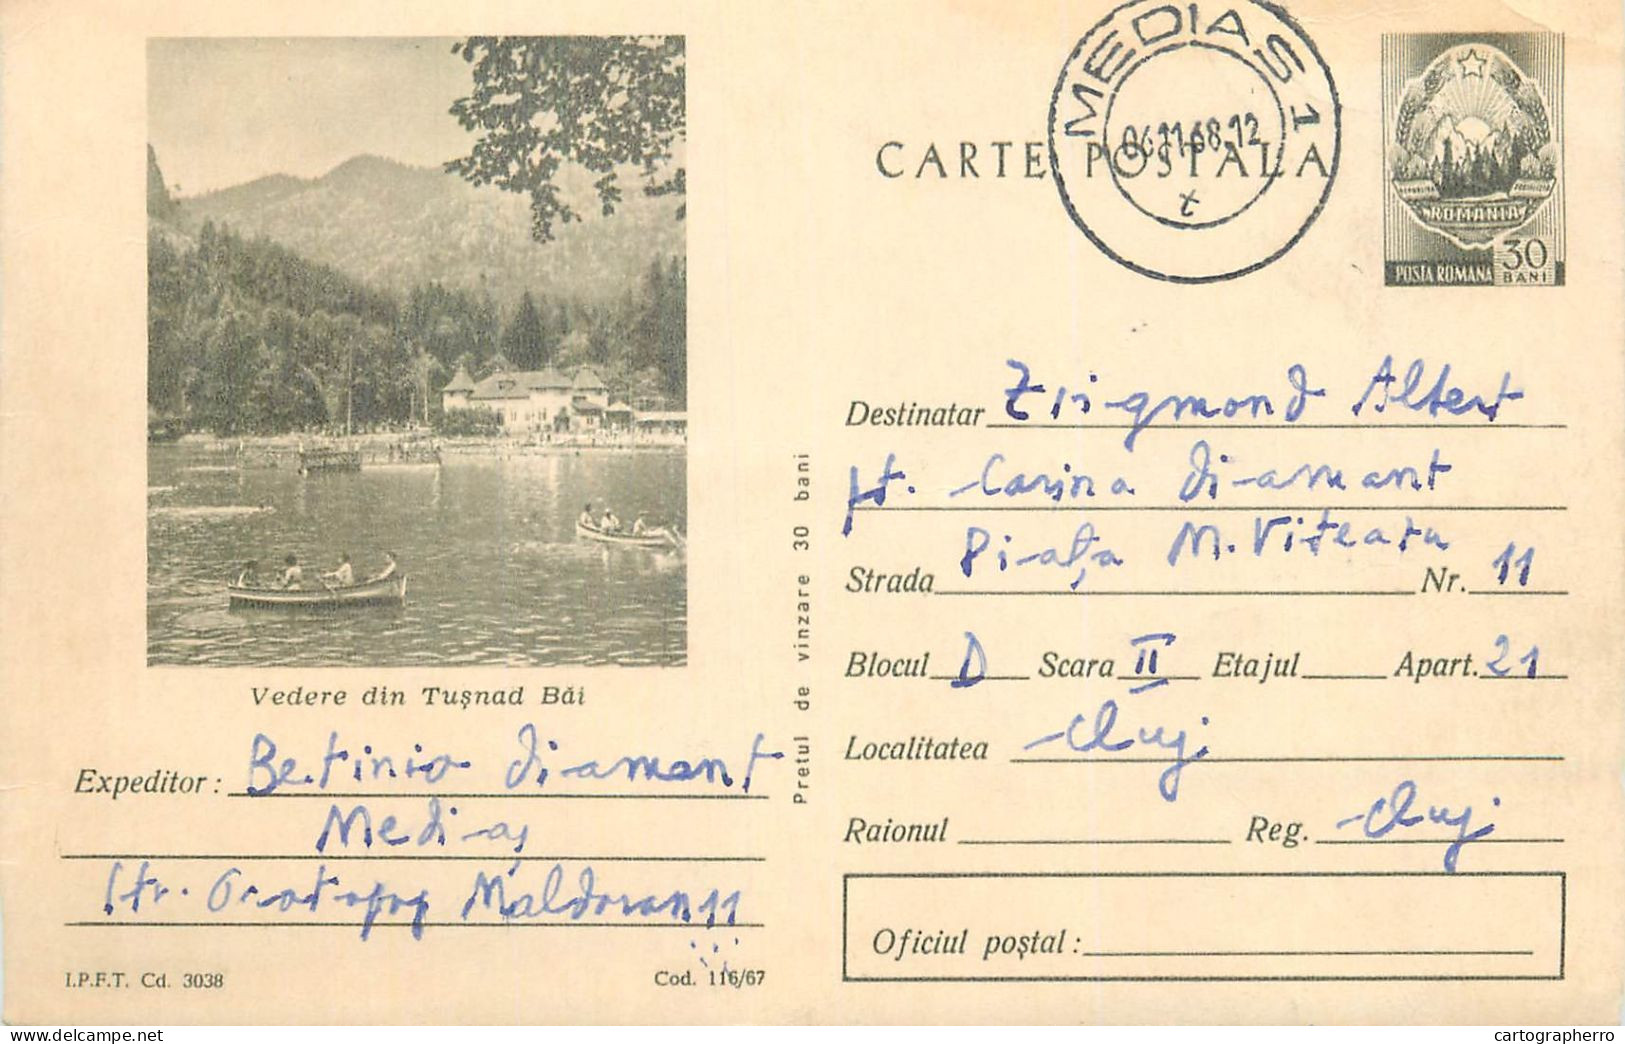 MEDIAS 1
06.11.68.12
CARTE POSTALA
REPUBLICA SOCIALISTA
ROMANIA
30
BANI
POSTA ROMANA
Destinatar Zsigmond Albert
pt. Carina Diamant
Strada Piața M. Viteazu Nr. 11
Blocul D Scara II Etajul Apart. 21
Localitatea Cluj
Raionul Reg. Cluj
Oficiul poștal :
Pretul de vinzare 30 bani
Vedere din Tușnad Băi
Expeditor : Diamant
Mediaș
Str. Protopop Moldovan 11
I.P.F.T. Cd. 3038
Cod. 116/67
cartographerro